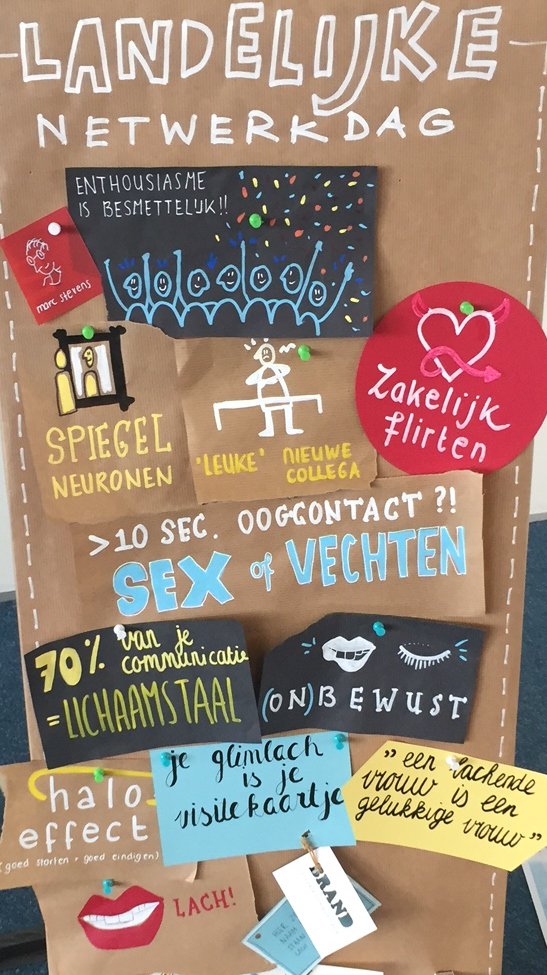 LANDELIJKE
NETWERKDAG
ENTHOUSIASME
IS BESMETTELIJK!!
marc stevens
SPIEGEL
NEURONEN
'LEUKE' NIEUWE
COLLEGA
Zakelijk
flirten
>10 SEC. OOGCONTACT ?!
SEX of VECHTEN
70% van je
communicatie
=LICHAAMSTAAL
(ON)BEWUST
je glimlach
is je
visitekaartje
"een lachende
vrouw is een
gelukkige vrouw"
halo
effect
(goed starten + goed eindigen)
LACH!
BRAND
HIER
NAAM